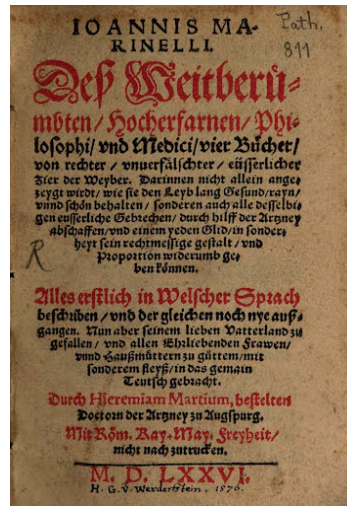 IOANNIS MA-
RINELLI.
Path.
811
Deß Weitberü-
mbten/ Hocherfarnen/ Phi-
losophi/ vnd Medici/ vier Bücher/
von rechter / vnuerfälschter / eüsserlicher
Zier der Weyber. Darinnen nicht allein ange-
zeygt wirdt / wie sie den Leyb lang Gesund/rayn/
vnnd schön behalten / sonderen auch alle desselbi-
gen eusserliche Gebrechen/ durch hilff der Artzney
abschaffen/vnd einem yeden Glid/in sonder-
heyt sein rechtmessige gestalt / vnd
Proportion widerumb ge-
ben können.
R
Alles erstlich in Welscher Sprach
beschriben / vnd der gleichen noch nye auß-
gangen. Nun aber seinem lieben Vatterland zu
gefallen / vnd allen Ehrliebenden Frawen/
vnnd Haußmüttern zu güttem/mit
sonderem fleyß/in das gemain
Teutsch gebracht.
Durch Hieremiam Martium, bestelten
Doctorn der Artzney zu Augspurg.
Mit Röm. Kay. May. Freyheit/
nicht nach zutrucken.
M. D. LXXVI.
H. G. V. Werdenstein. 1576.